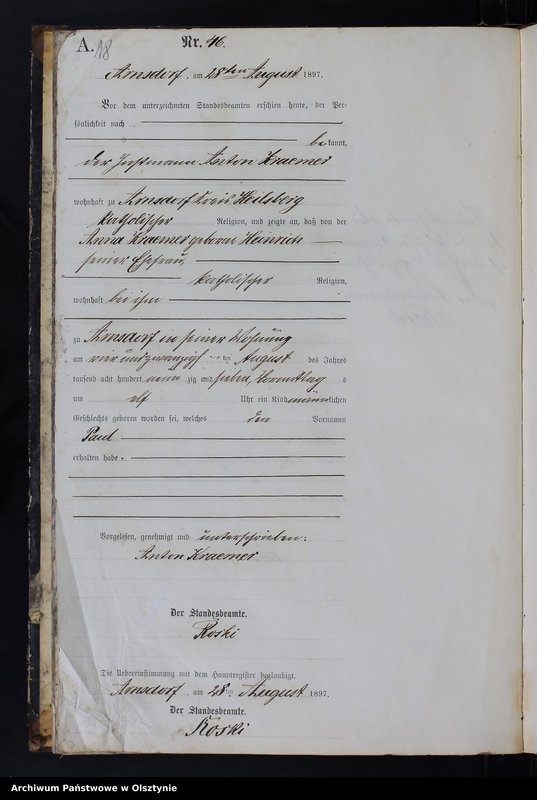 A. 18 Nr. 46.
Arnsdorf, am 28ten August 1897.
Vor dem unterzeichneten Standesbeamten erschien heute, der Per-
sönlichkeit nach
bekannt,
der Instmann Anton Kraemer
wohnhaft zu Arnsdorf Kreis Heilsberg
katholischer Religion, und zeigte an, daß von der
Anna Kraemer geborne Heinrich
seiner Ehefrau,
katholischer Religion,
wohnhaft bei ihm
zu Arnsdorf in seiner Wohnung
am vier und zwanzigsten August des Jahres
tausend acht hundert neunzig und sieben, Vormittags
um elf Uhr ein Kind männlichen
Geschlechts geboren worden sei, welches den Vornamen
Paul
erhalten habe.
Vorgelesen, genehmigt und unterschrieben:
Anton Kraemer
Der Standesbeamte.
Roski
Die Uebereinstimmung mit dem Hauptregister beglaubigt.
Arnsdorf, am 28ten August 1897.
Der Standesbeamte.
Roski
Archiwum Państwowe w Olsztynie